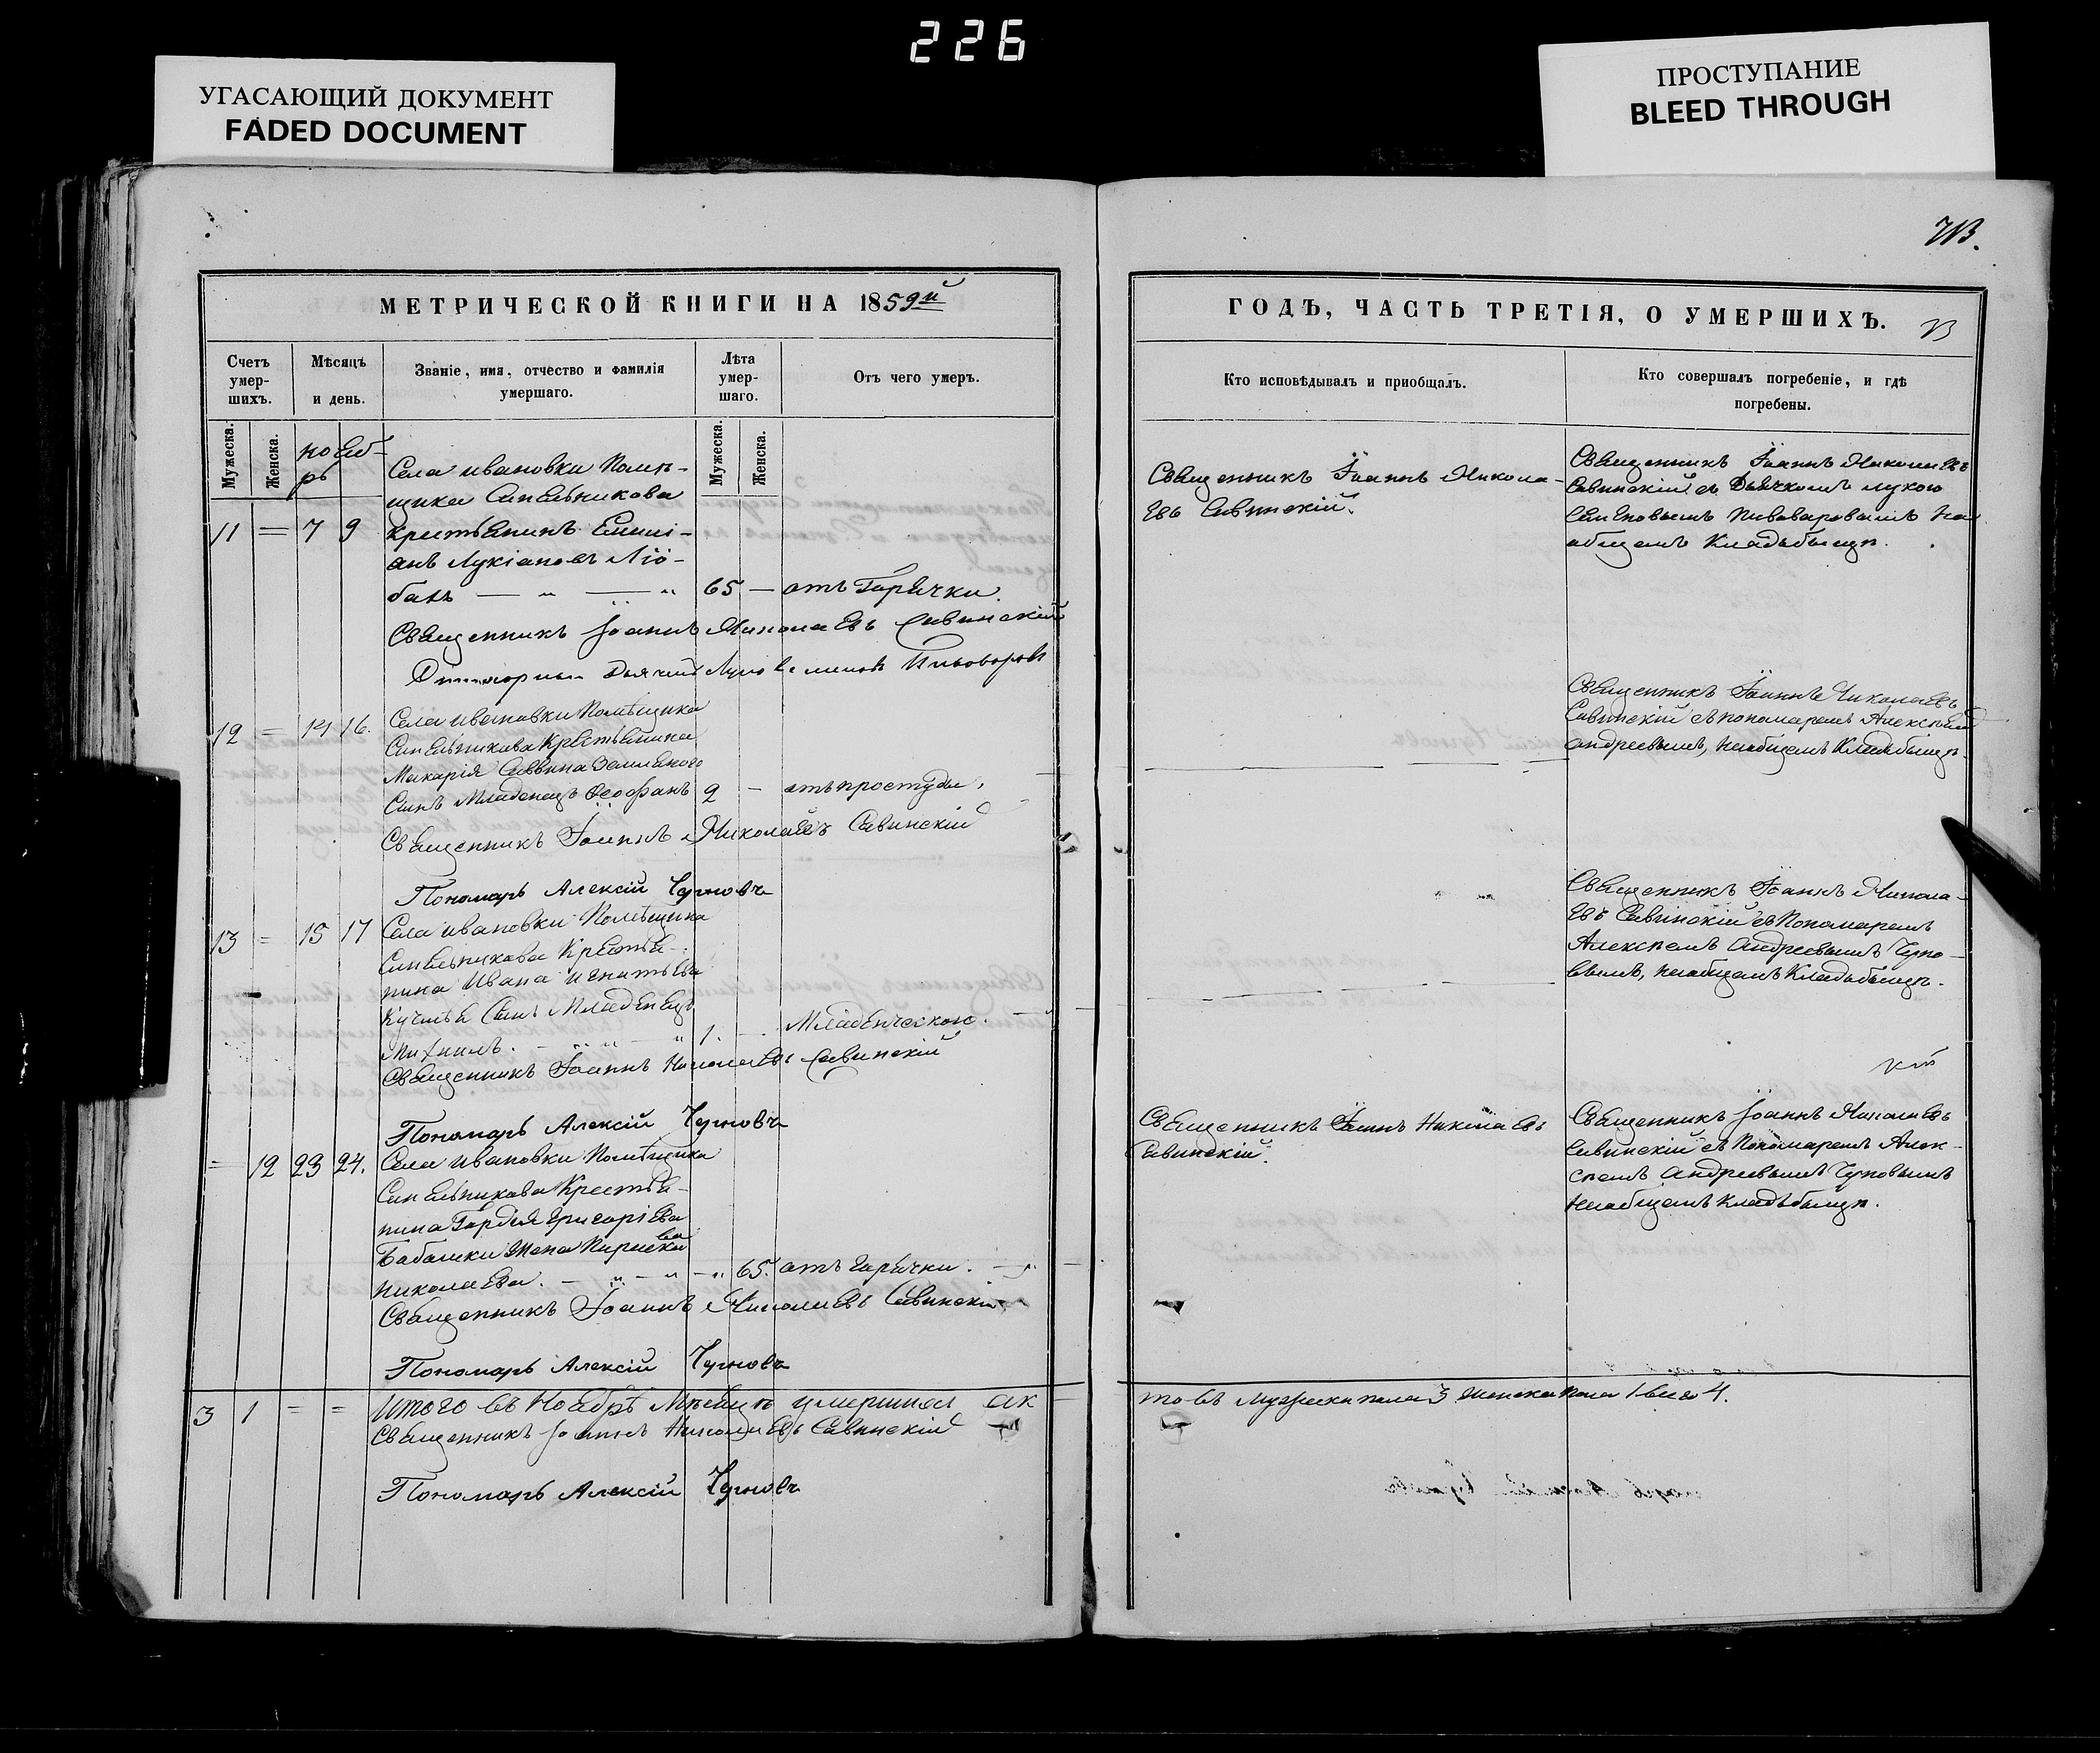 226
УГАСАЮЩИЙ ДОКУМЕНТ
FADED DOCUMENT
ПРОСТУПАНИЕ
BLEED THROUGH
МЕТРИЧЕСКОЙ КНИГИ НА 1859й
Счетъ умершихъ.
Мужеска.
Женска.
Мѣсяцъ и день.
Званіе, имя, отчество и фамилія умершаго.
Лѣта умершаго.
Мужеска.
Женска.
Отъ чего умеръ.
ноябрь
11 = 7 9
Села Ивановки Помѣ-
щика Синельникова
крестьянинъ Емили-
анъ Лукіановъ
65 — отъ Горячки.
Священникъ Іоаннъ Николаевъ Савинскій
12 = 14 16.
Села Ивановки Помѣщика
Синельникова Крестьянина
Макарія Саввина
Сынъ Младенецъ Ѳеофанъ 2 — отъ простуды,
Священникъ Іоаннъ Николаевъ Савинскій
Пономарь Алексій Черновъ
13 = 15 17
Села Ивановки Помѣщика
Синельникова Крестья-
нина Ивана Игнатьева
Сынъ Младенецъ
Михаилъ. 1. Младенческою.
Священникъ Іоаннъ Николаевъ Савинскій
Пономарь Алексій Черновъ
= 12 23 24.
Села Ивановки Помѣщика
Синельникова Крестья-
нина Гордея Григоріева
Бабашки жена
Николаева. 65. отъ горячки.
Священникъ Іоаннъ Николаевъ Савинскій
Пономарь Алексій Черновъ
3 1 = = Итого въ Ноябрѣ Мѣсяцѣ умершихъ ак
Священникъ Іоаннъ Николаевъ Савинскій
Пономарь Алексій Черновъ
ГОДЪ, ЧАСТЬ ТРЕТІЯ, О УМЕРШИХЪ.
Кто исповѣдывалъ и пріобщалъ.
Кто совершалъ погребеніе, и гдѣ погребены.
Священникъ Іоаннъ Никола-
евъ Савинскій.
Священникъ Іоаннъ Николаевъ
Савинскій съ Дьячкомъ Лукою
Семеновымъ Пивоваровымъ на
общемъ Кладьбыщѣ.
Священникъ Іоаннъ Николаевъ
Савинскій съ пономаремъ Алексѣемъ
Андреевымъ, на общемъ Кладьбыщѣ.
Священникъ Іоаннъ Никола-
евъ Савинскій съ Пономаремъ
Алексѣемъ Андреевымъ Черно-
вымъ, на общемъ Кладьбыщѣ.
Священникъ Іоаннъ Николаевъ
Савинскій.
Священникъ Іоаннъ Николаевъ
Савинскій съ Пономаремъ Алек-
сѣемъ Андреевымъ Черновымъ
на общемъ кладьбыщѣ.
то въ Мужеска пола 3 женска пола 1 всего 4.